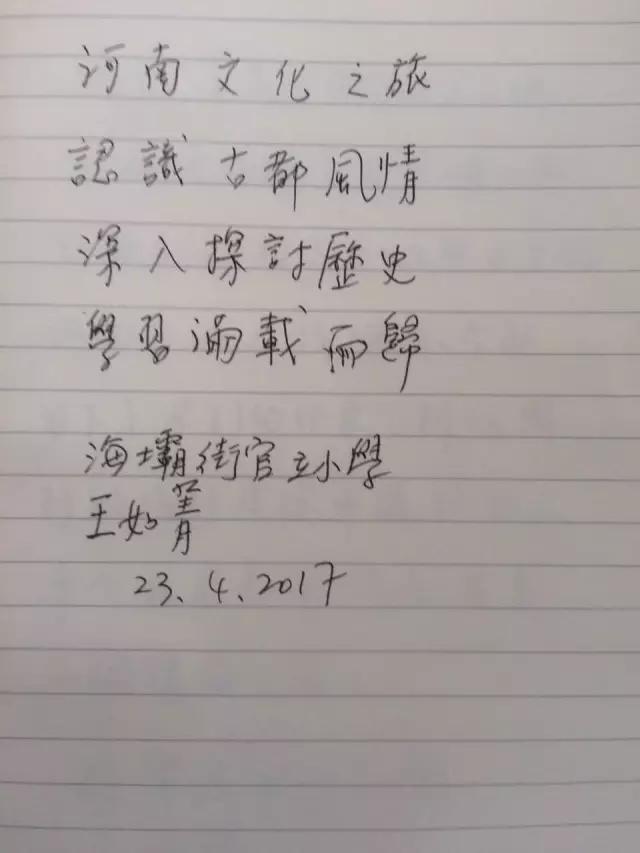 河南文化之旅
認識古都風情
深入探討歷史
學習滿載而歸
海壩街官立小學
王如菁
23.4.2017